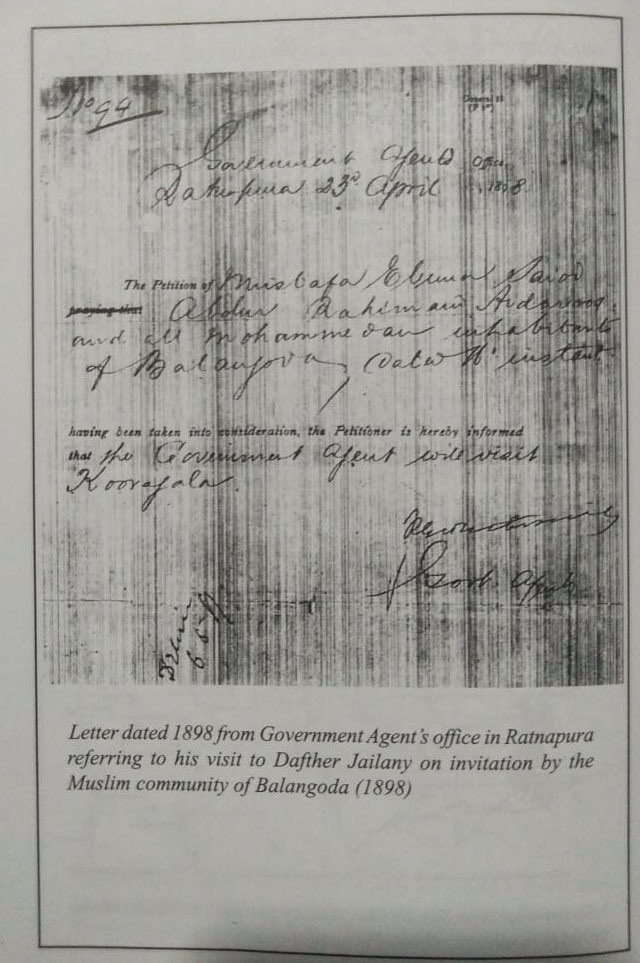 No 94
General 18
Government Agent's Office
Ratnapura 23rd April 1898
The Petition of Mustafa
praying that Abdur Rahiman
and all Mohammedan inhabitants
of Balangoda, instant
having been taken into consideration, the Petitioner is hereby informed
that the Government Agent will visit
Kooragala.
Govt Agent
Letter dated 1898 from Government Agent's office in Ratnapura
referring to his visit to Dafther Jailany on invitation by the
Muslim community of Balangoda (1898)